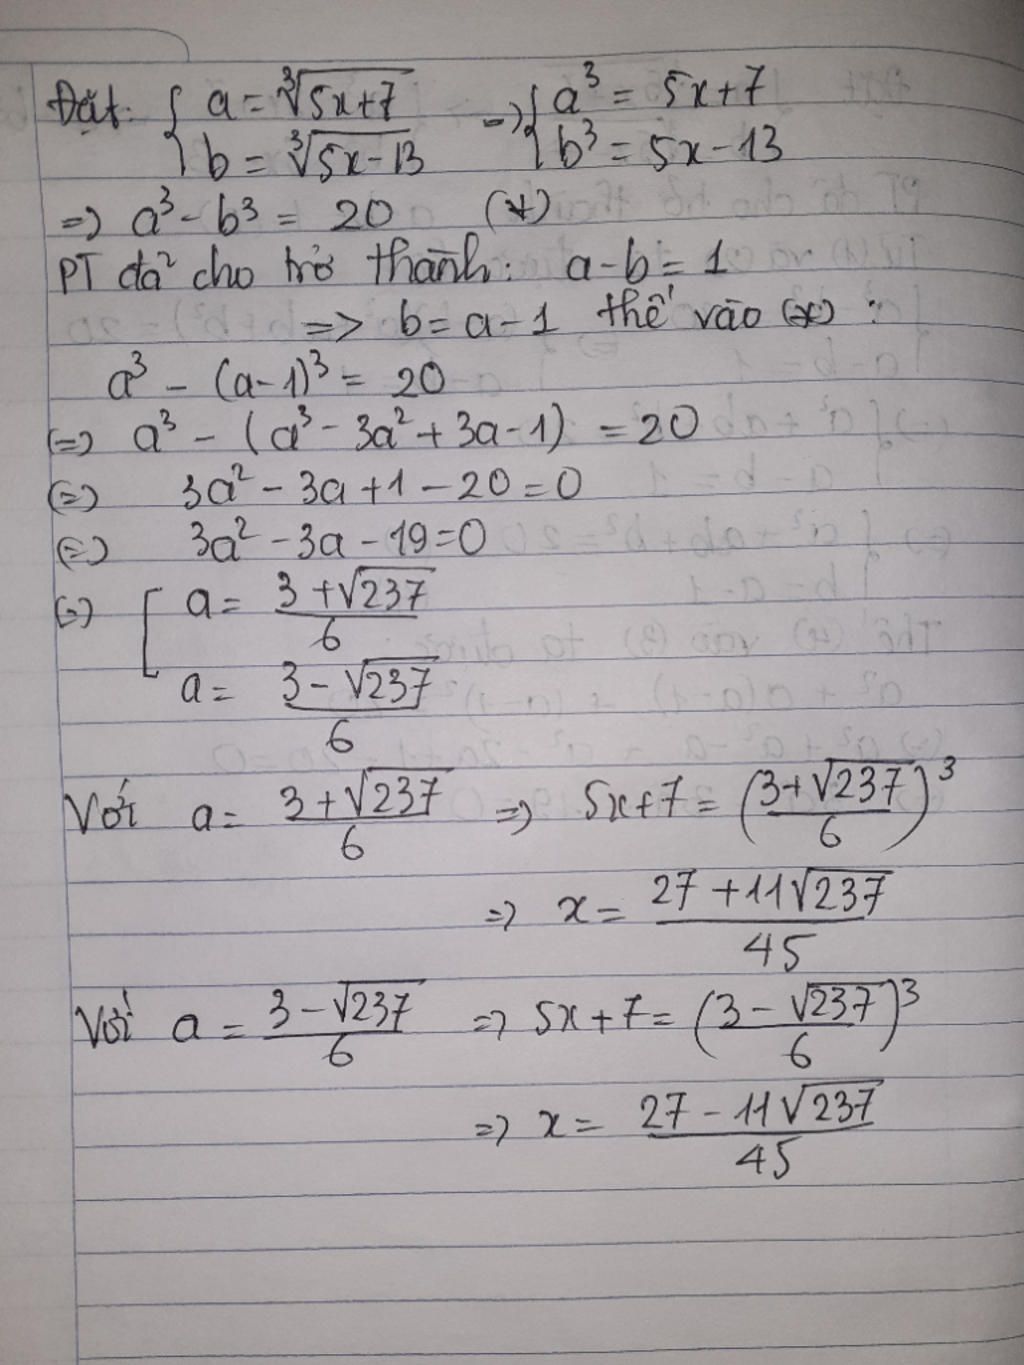 Đặt: { a = ∛(5x+7) => { a³ = 5x+7
b = ∛(5x-13) b³ = 5x-13
=> a³ - b³ = 20 (*)
PT đã cho trở thành: a-b = 1
=> b = a-1 thế vào (*) :
a³ - (a-1)³ = 20
(=) a³ - (a³ - 3a² + 3a - 1) = 20
(=) 3a² - 3a + 1 - 20 = 0
(=) 3a² - 3a - 19 = 0
(=) [ a = (3 + √237)/6
a = (3 - √237)/6
Với a = (3 + √237)/6 => 5x+7 = ((3 + √237)/6)³
=> x = (27 + 11√237)/45
Với a = (3 - √237)/6 => 5x+7 = ((3 - √237)/6)³
=> x = (27 - 11√237)/45